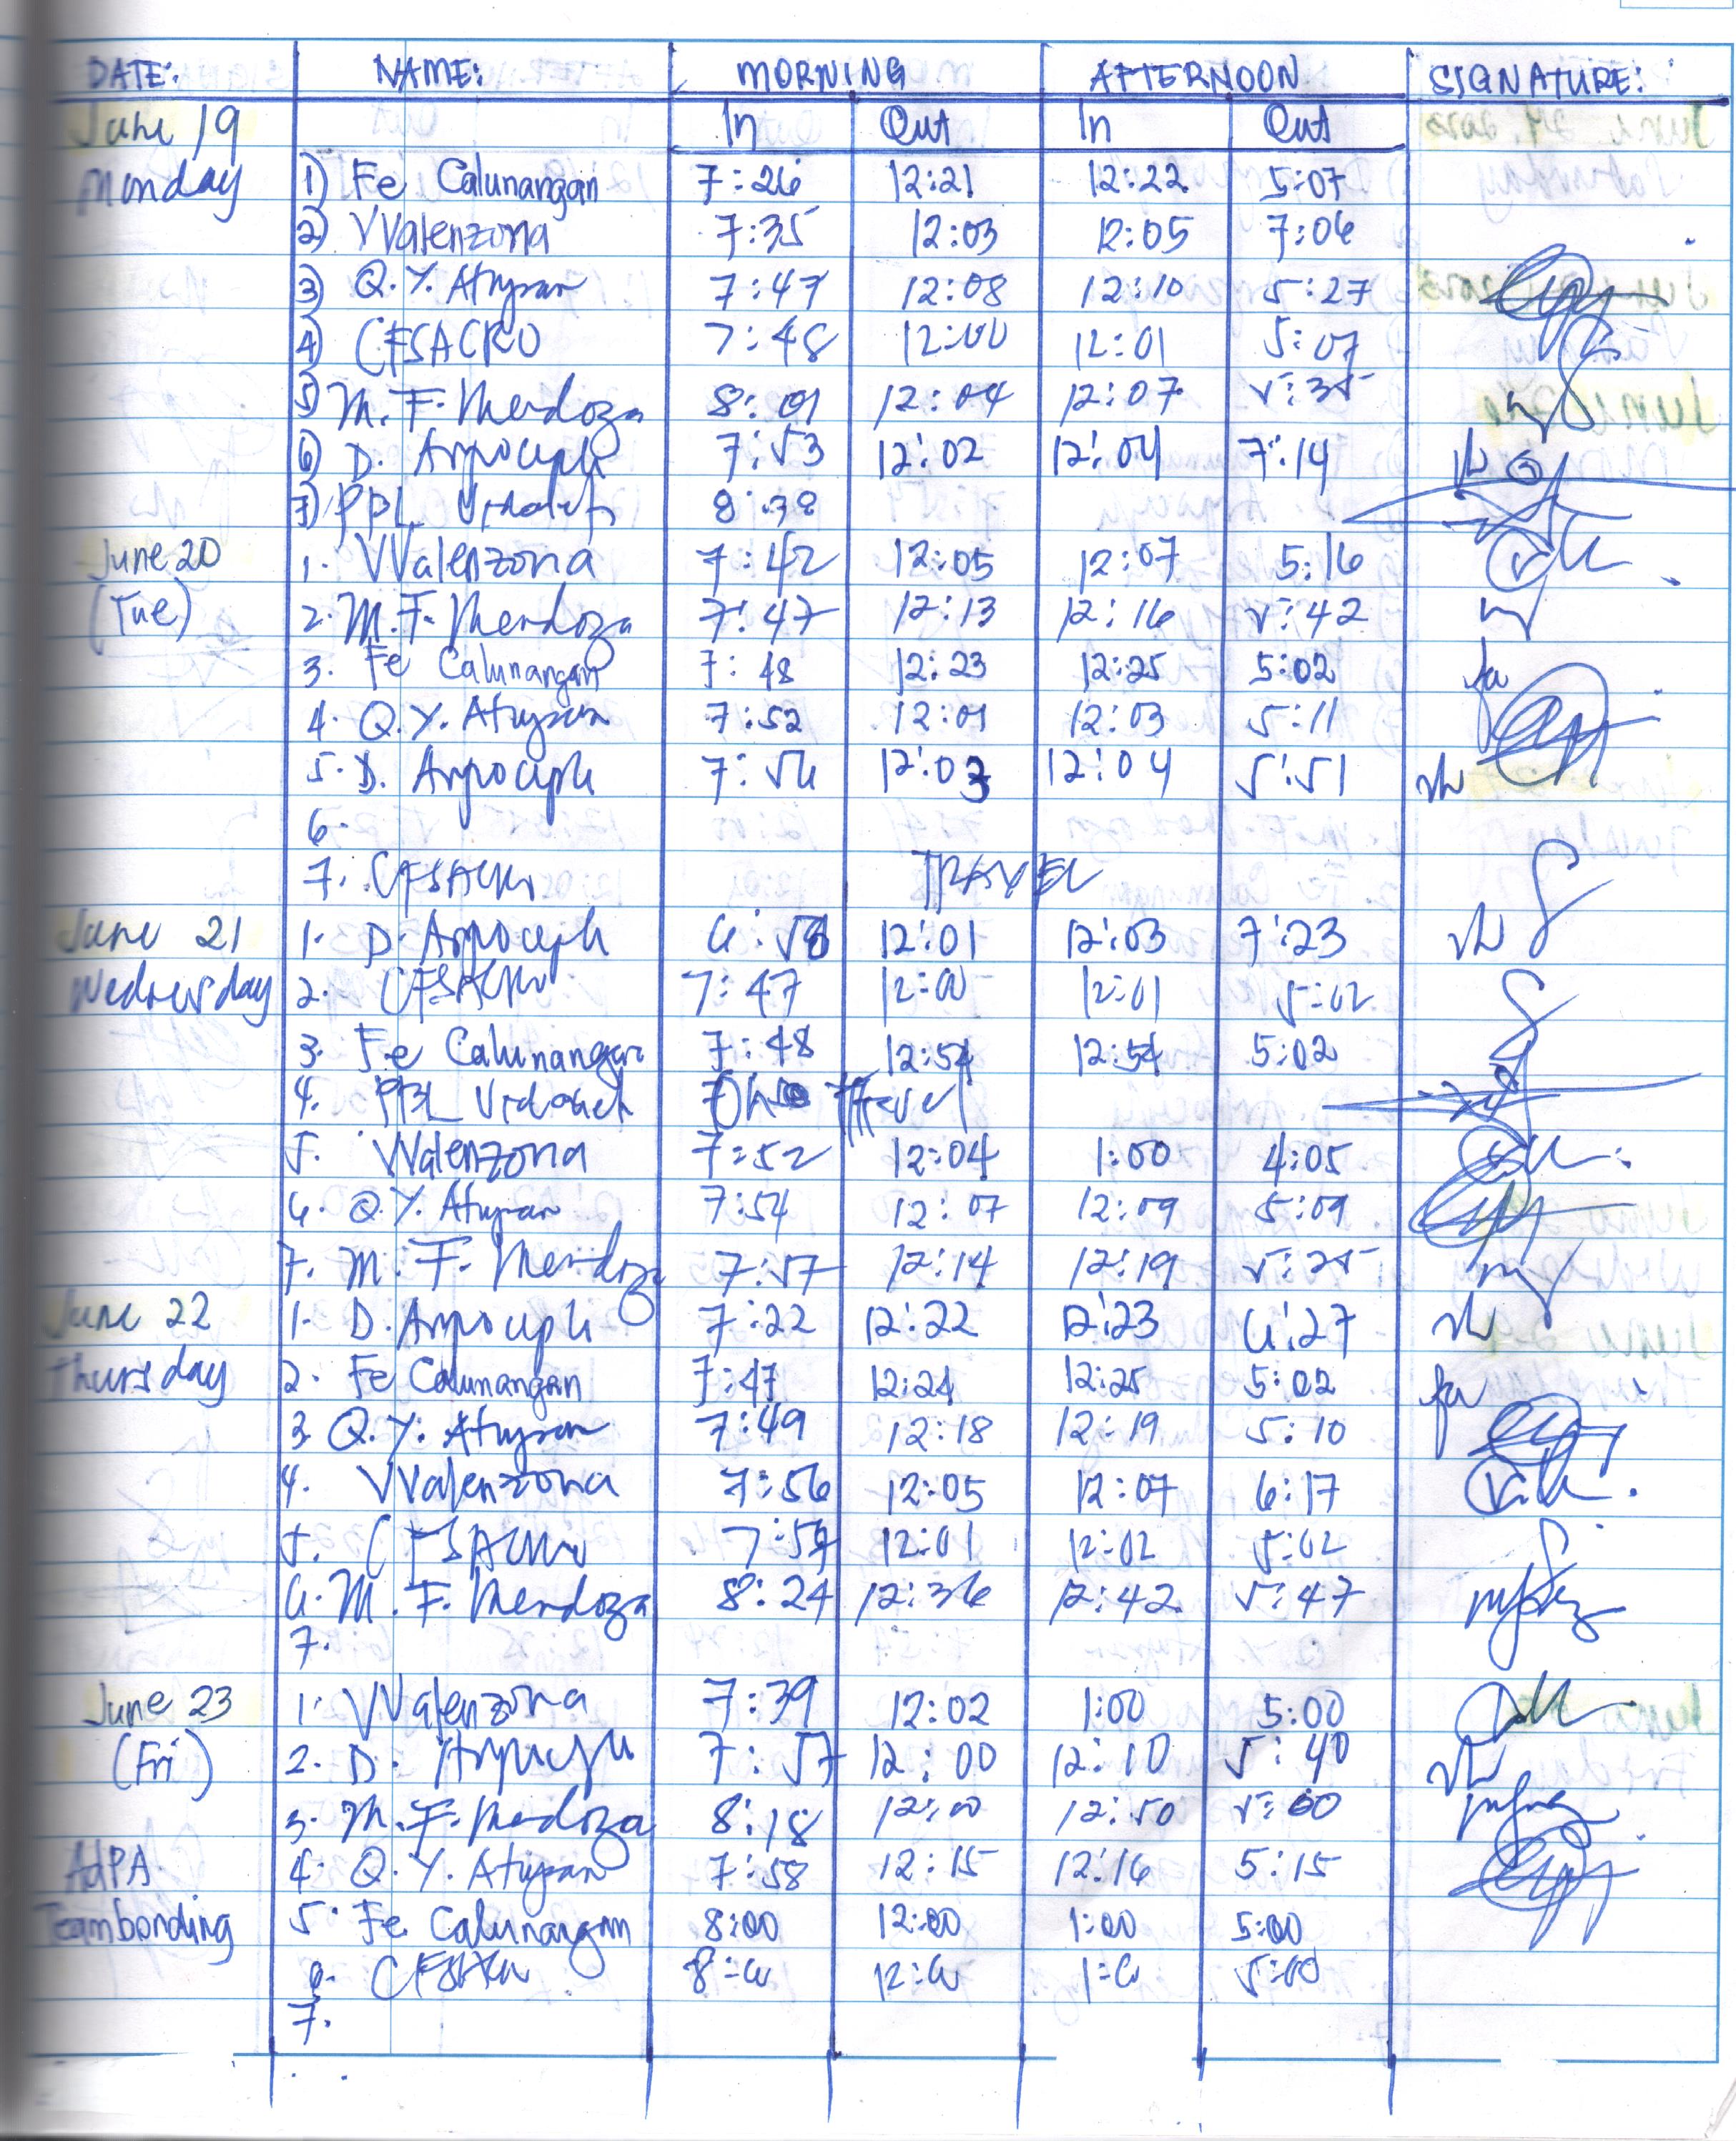 DATE: NAME: MORNING AFTERNOON SIGNATURE:
June 19 In Out In Out
Monday 1) Fe Calunangan 7:26 12:21 12:22 5:07
2) VValenzona 7:35 12:03 12:05 7:06
3) Q.Y. Atupan 7:47 12:08 12:10 5:27
4) CFSACRO 7:48 12:00 12:01 5:07
5) M.F. Mendoza 8:01 12:04 12:07 5:35
6) D. 7:53 12:02 12:04 7:14
7) PBL 8:38
June 20 1. VValenzona 7:42 12:05 12:07 5:16
(Tue) 2. M.F. Mendoza 7:47 12:13 12:16 5:42
3. Fe Calunangan 7:48 12:23 12:25 5:02
4. Q.Y. Atupan 7:52 12:01 12:03 5:11
5. D. 7:56 12:03 12:04 5:51
6.
7. TRAVEL
June 21 1. D. 12:01 12:03 7:23
Wednesday 2. 7:47 12:00 12:01 5:02
3. Fe Calunangan 7:48 12:54 12:54 5:02
4. PBL Travel
5. VValenzona 7:52 12:04 1:00 4:05
6. Q.Y. Atupan 7:54 12:07 12:09 5:09
7. M.F. Mendoza 7:57 12:14 12:19 5:25
June 22 1. D. 7:22 12:22 12:23 6:27
Thursday 2. Fe Calunangan 7:47 12:24 12:25 5:02
3. Q.Y. Atupan 7:49 12:18 12:19 5:10
4. VValenzona 7:56 12:05 12:07 6:17
5. 7:59 12:01 12:02 5:02
6. M.F. Mendoza 8:24 12:36 12:42 5:47
7.
June 23 1. VValenzona 7:39 12:02 1:00 5:00
(Fri) 2. D. 7:57 12:00 12:10 5:40
3. M.F. Mendoza 8:18 12:00 12:50 5:00
AdPA 4. Q.Y. Atupan 7:58 12:15 12:16 5:15
Teambonding 5. Fe Calunangan 8:00 12:00 1:00 5:00
6. 8:00 12:00 1:00 5:00
7.